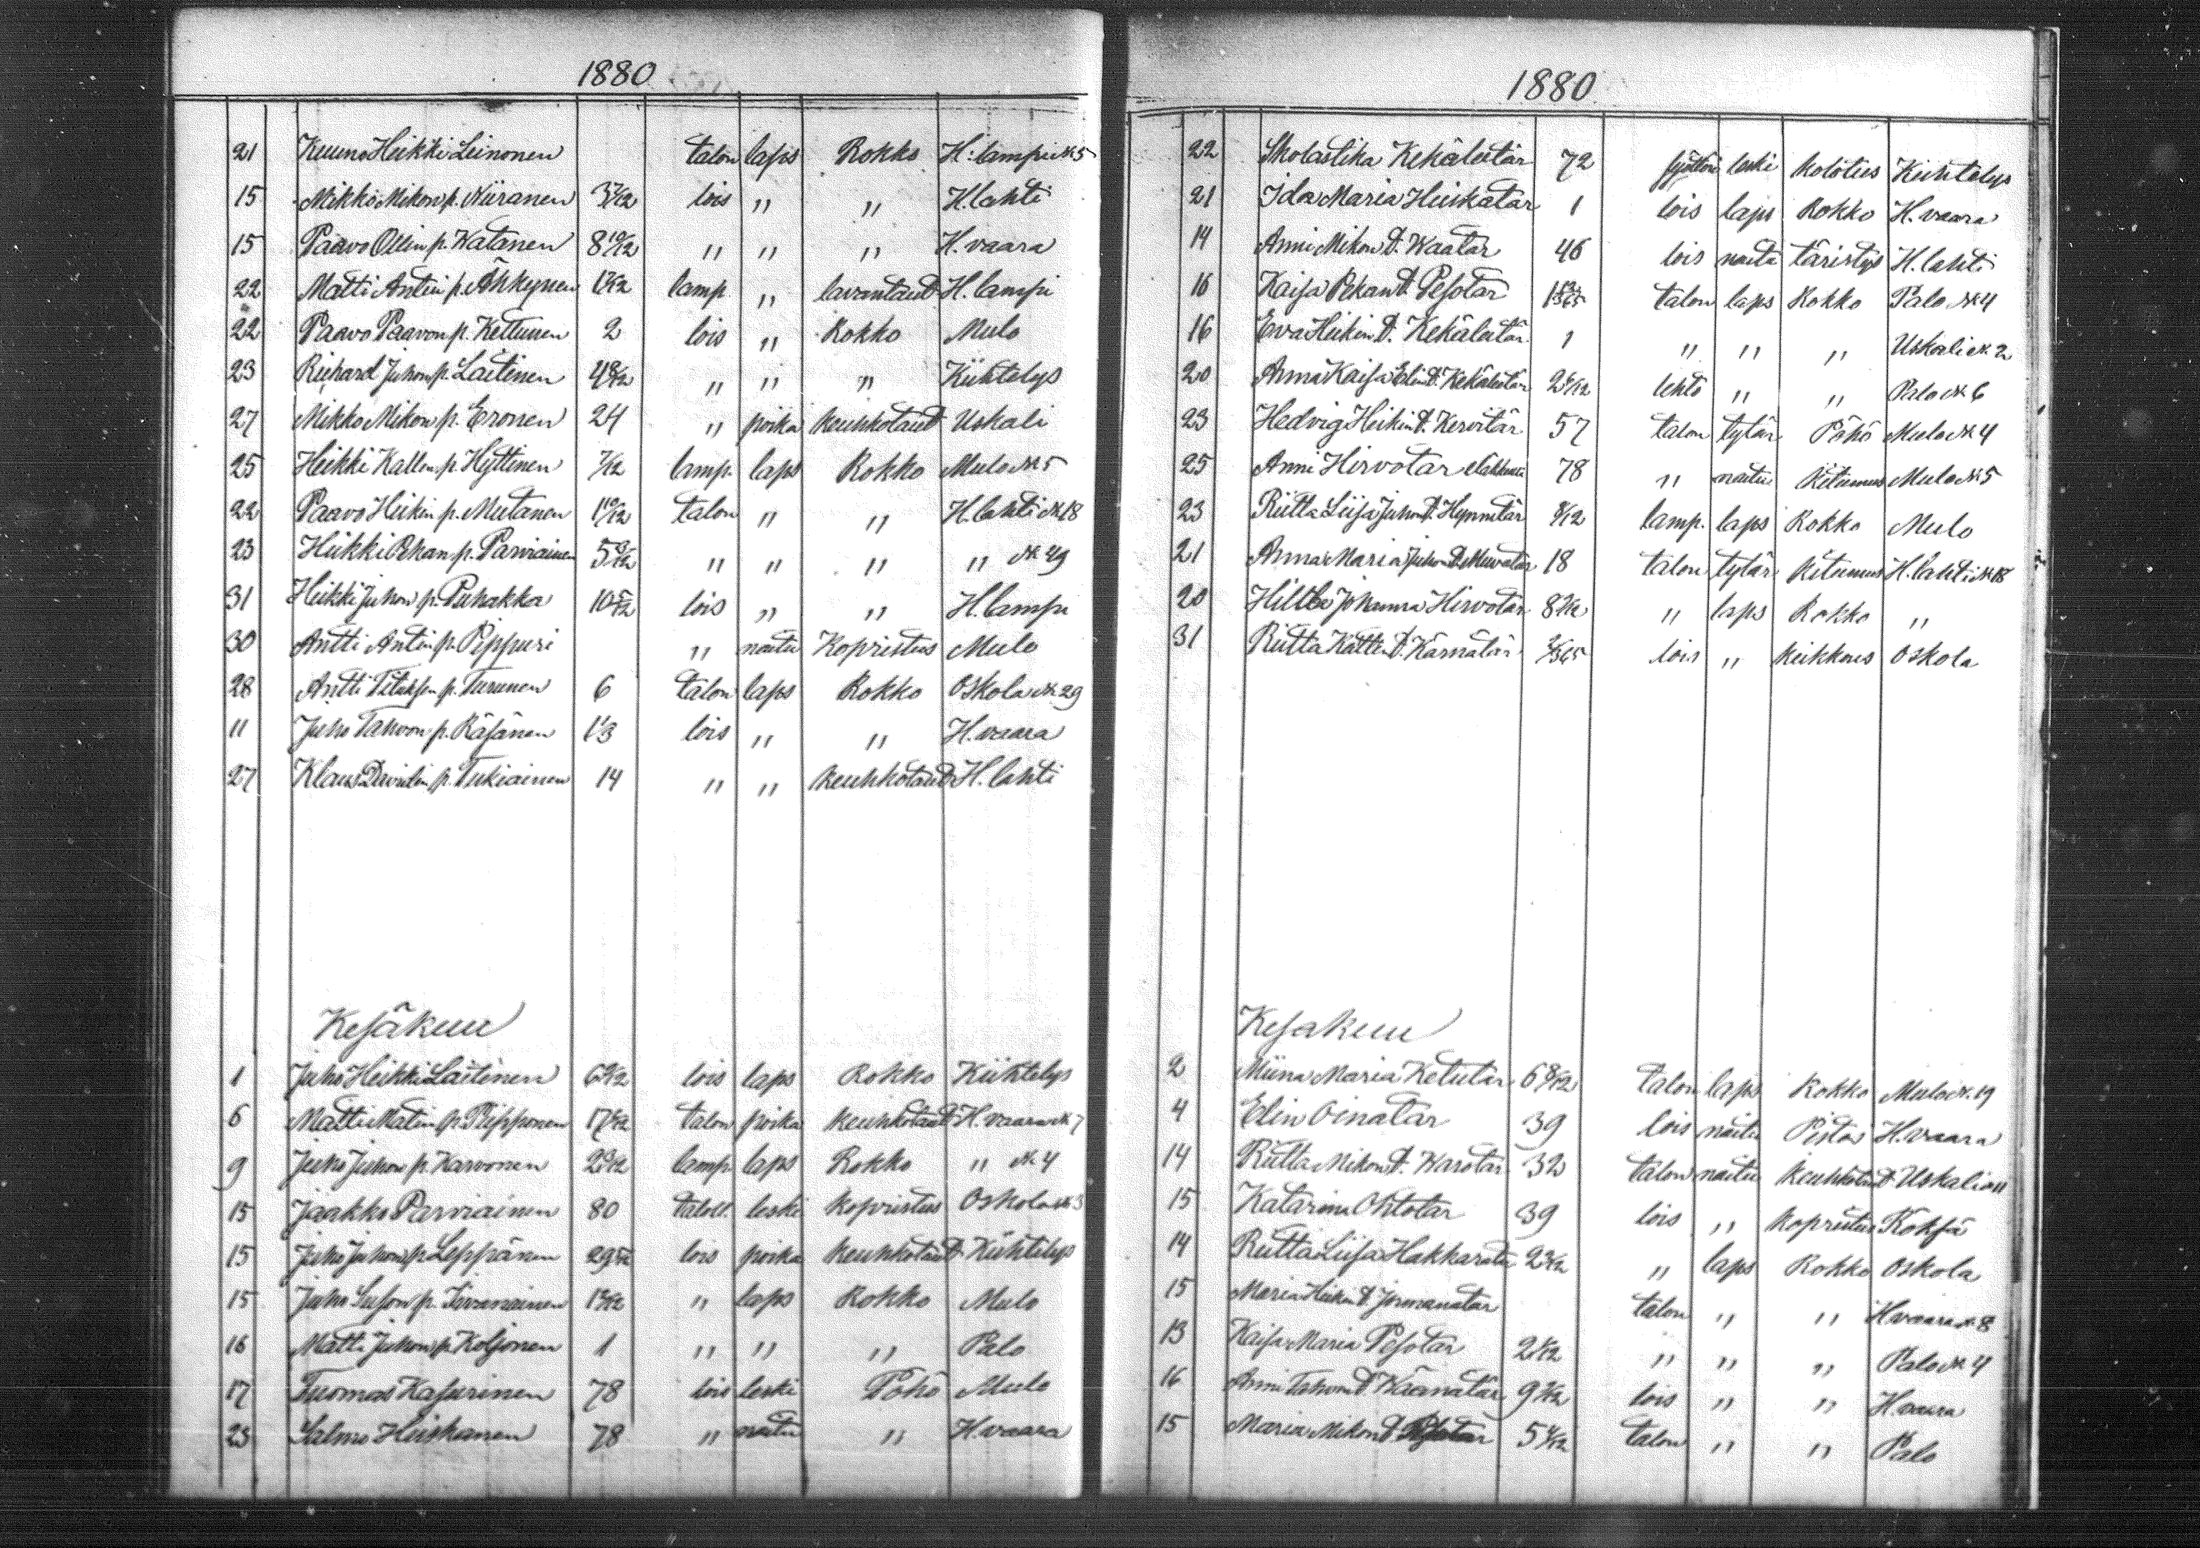 1880
21 Kuuno Heikki Leinonen talon laps Rokko H:lampi № 5
15 Mikko Mikon p. Niiranen 3 7/12 lois " " H.lahti
15 Paavo Ollin p. Katanen 8 10/12 " " " H.vaara
22 Matti Antin p. Öhkynen lamp. " lavantaud H.lampi
22 Paavo Paavon p. Kettunen 2 lois " Rokko Mulo
23 Richard Juhon p. Laitinen 4 8/12 " " " Kiihtelys
27 Mikko Mikon p. Eronen 24 " poika keuhkotaud Uskali
25 Heikki Kallen p. Hyttinen 7/12 lamp. laps Rokko Mulo № 5
22 Paavo Heikin p. Mutanen 1 10/12 talon " " H.lahti № 18
23 Heikki Pekan p. Parviainen 5 " " " " № 49
31 Heikki Juhon p. Puhakka 10 5/12 lois " " H.lampi
30 Antti Antin p. Pippuri " naitu Kopristus Mulo
28 Antti p. Turunen 6 talon laps Rokko Oskola № 29
11 Juho Tahvon p. Räsänen 1 1/3 lois " " H.vaara
27 Klaus Davidin p. Tukiainen 14 " " Keuhkotaud H.lahti
Kesäkuu
1 Juho Heikki Laitinen 6 lois laps Rokko Kiihtelys
6 Matti Matin p. Piipponen 17 talon poika keuhkotaud H.vaara № 7
9 Juho Juhon p. Karvonen 2 lamp. laps Rokko " № 4
15 Jaakko Parviainen 80 taloll. leski kopristus Oskola № 3
15 Juho Juhon p. Leppänen 29 lois poika keuhkotaud Kiihtelys
15 Juho p. 1 " laps Rokko Mulo
16 Matti Juhon p. Koljonen 1 " " " Palo
17 Tuomas Kasurinen 78 lois leski Pöhö Mulo
23 Salmo Heiskanen 78 " naitu " H.vaara
1880
22 Skolastika Kekälätär 72 leski kolotus Kiihtelys
21 Ida Maria Heiskatar 1 lois laps Rokko H.vaara
14 Anni Mikon t. Waatar 46 lois naitu täristys H.lahti
16 Kaisa Pekan t. Pesotar talon laps Rokko Palo № 4
16 Eva Heikin t. Kekälätär 1 " " " Uskali № 2
20 Anna Kaisa t. Kekälätär 2 lehto " " Palo № 6
23 Hedvig Heikin t. Kervitär 57 talon tytär Pöhö Mulo № 4
25 Anni Hirvotar 78 " naitu Kitumus Mulo № 5
23 Riitta Liisa Juhon t. Hynnitär 8/12 lamp. laps Rokko Mulo
21 Anna Maria Juhon t. 18 talon tytär kitumus H.lahti № 18
20 Hilda Johanna Hirvotar 8 " laps Rokko "
31 Riitta Kallen t. Kärnätär lois " Keikkous Oskola
Kesakuu
2 Miina Maria Ketutar 6 8/12 talon laps Rokko Mulo № 19
4 Elin Oinatar 39 lois naitu Pistos H.vaara
14 Riitta Mikon t. Warotar 32 talon naitu keuhkotaud Uskali 11
15 Katarina Ohtotar 39 lois " kopristus Koksä
14 Riitta Liisa Hakkaratar 2 " laps Rokko Oskola
15 Maria Heikin t. Jormanatar talon " " H.vaara № 8
13 Kaisa Maria Pesotar 2 " " " Palo № 4
16 Anni Tahvon t. Käärnätär 9 lois " " H.vaara
15 Maria Mikon t. Pesotar 5 talon " " Palo